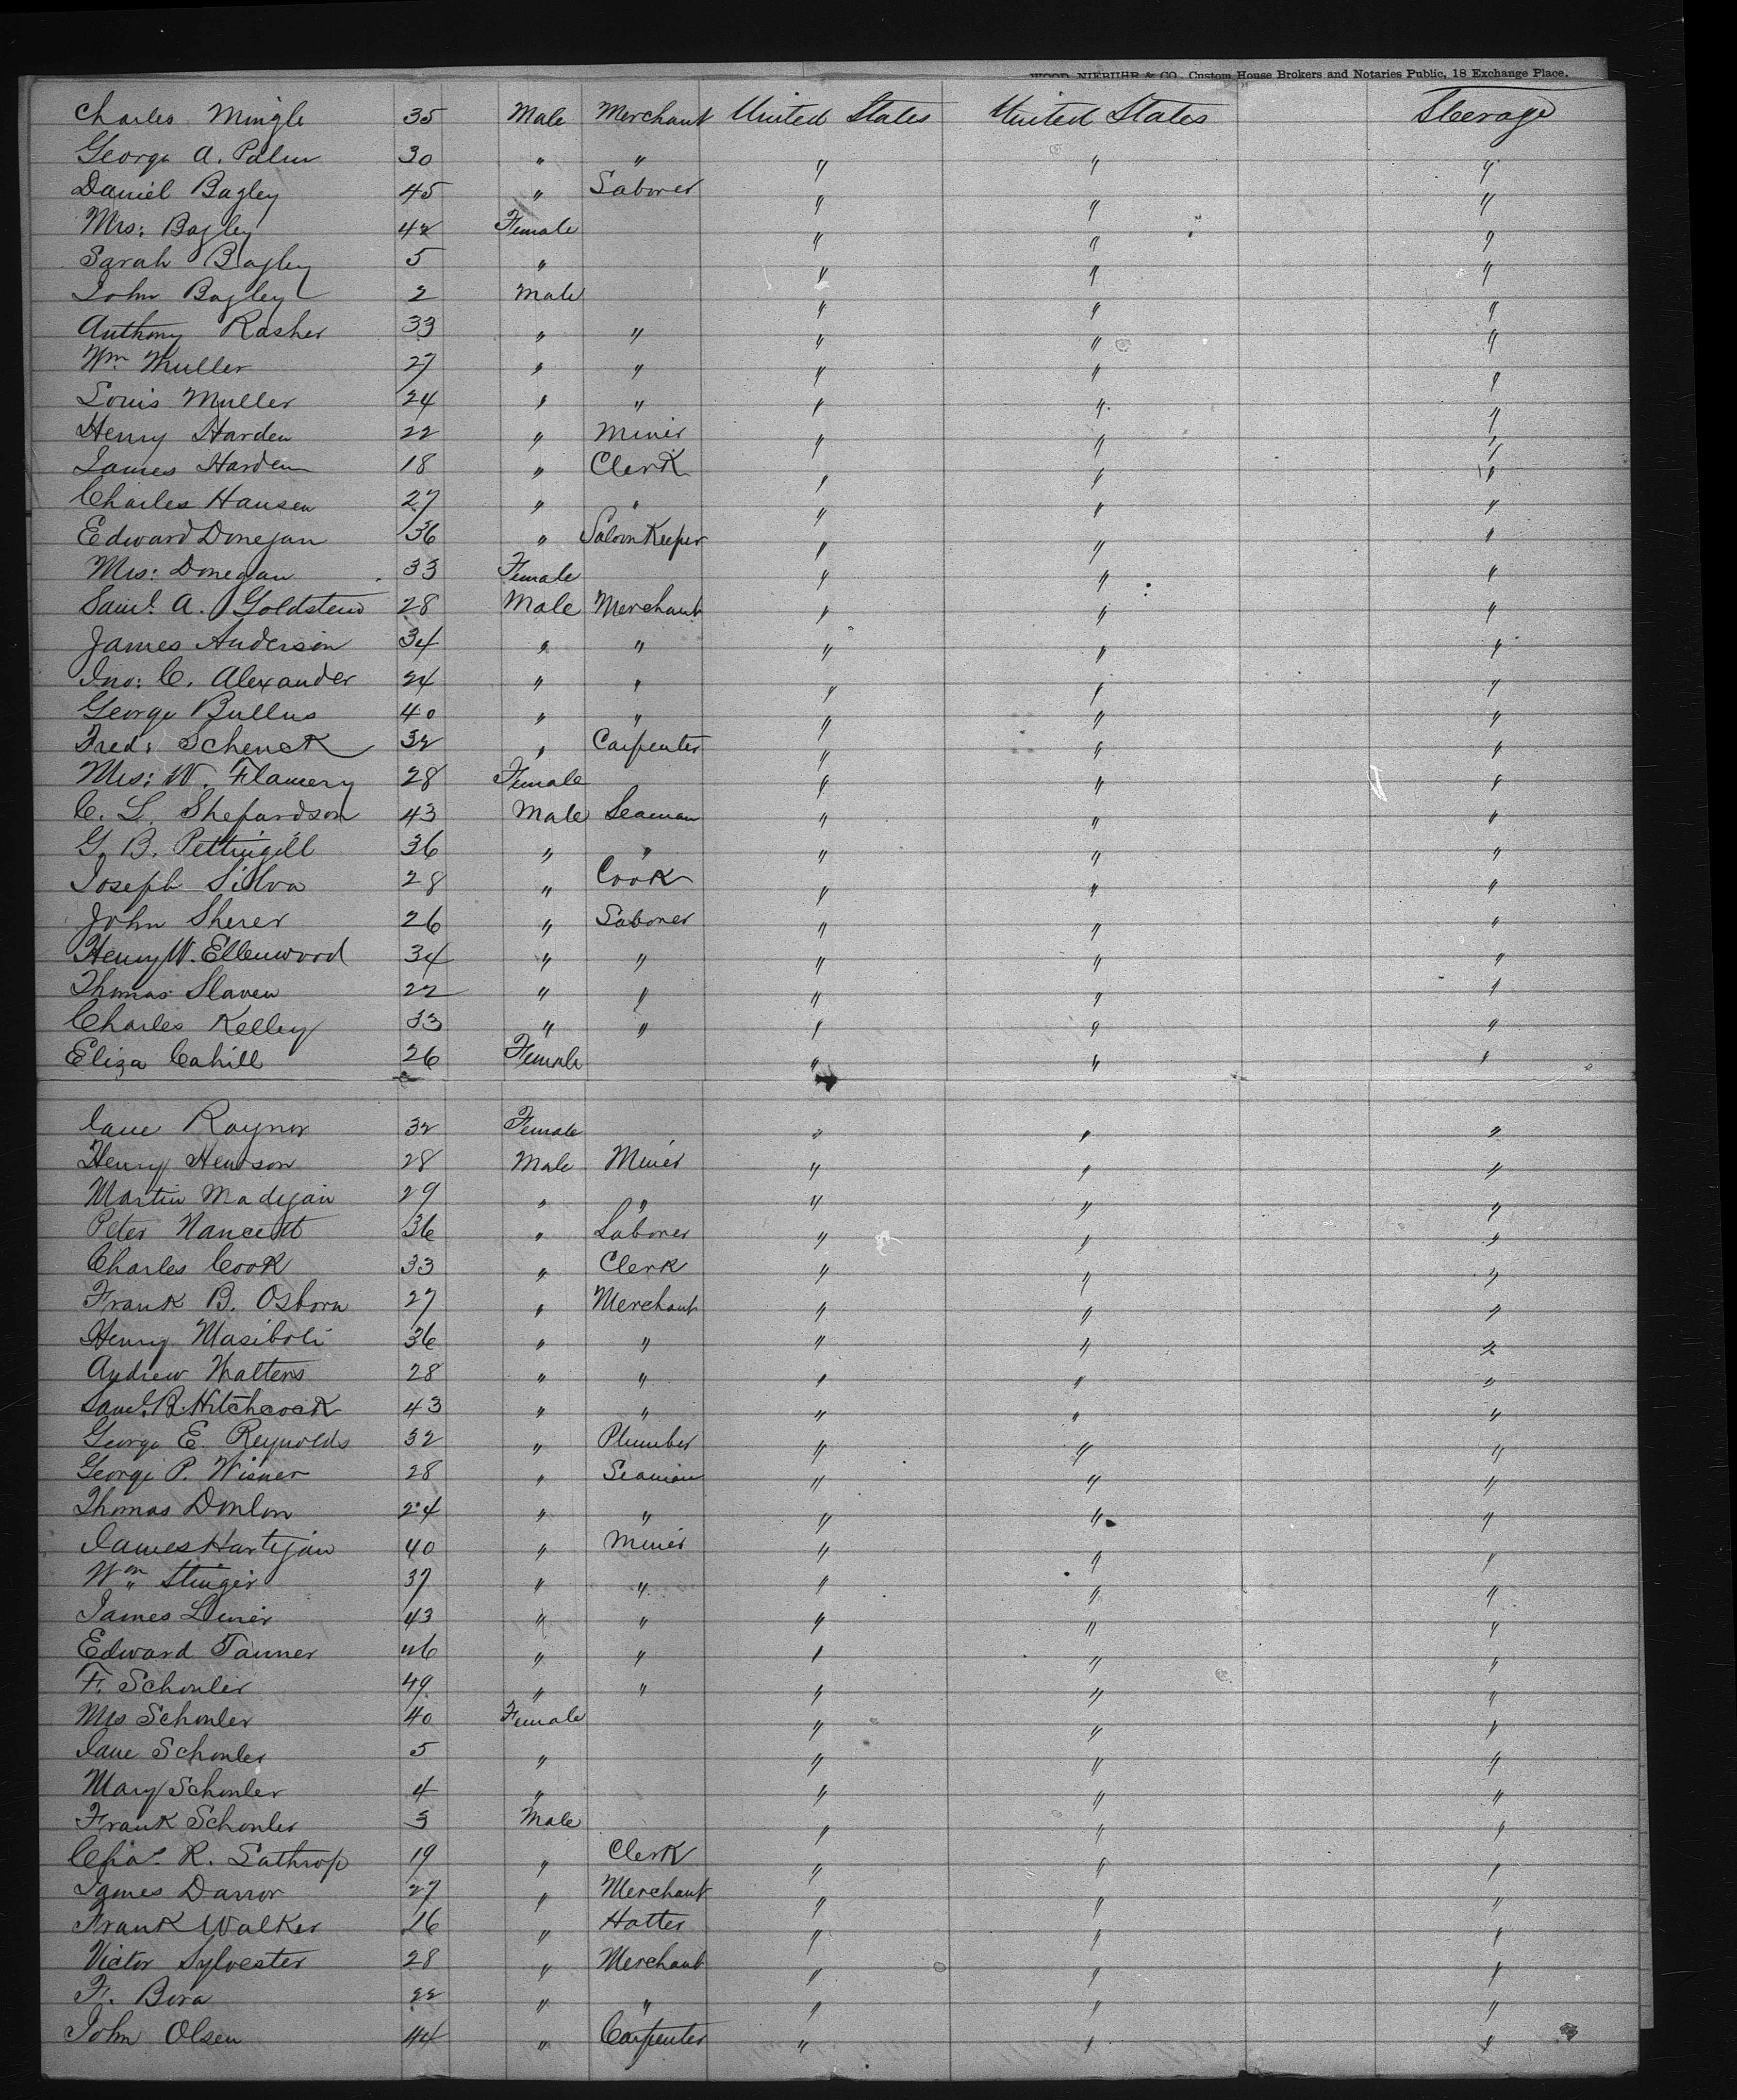 WOOD, NIEBUHR & CO. Custom House Brokers and Notaries Public, 18 Exchange Place.
Charles Mingle 35 Male Merchant United States United States Steerage
George A. Palm 30 " " " " "
Daniel Bagley 45 " Laborer " " "
Mrs: Bagley 42 Female " " "
Sarah Bagley 5 " " " "
John Bagley 2 Male " " "
Anthony Rasher 33 " " " " "
Wm Muller 27 " " " " "
Louis Muller 24 " " " " "
Henry Harden 22 " Miner " " "
James Harden 18 " Clerk " " "
Charles Hansen 27 " " " " "
Edward Donegan 36 " Saloon Keeper " " "
Mrs: Donegan 33 Female " " "
Saml. A. Goldstein 28 Male Merchant " " "
James Anderson 34 " " " " "
Jno: C. Alexander 24 " " " " "
George Bullus 40 " " " " "
Fred: Schenck 32 " Carpenter " " "
Mrs: W. Flamery 28 Female " " "
C. L. Shepardson 43 Male Seaman " " "
G. B. Pettingill 36 " " " " "
Joseph Silva 28 " Cook " " "
John Sherer 26 " Laborer " " "
Henry W. Ellenwood 34 " " " " "
Thomas Slaven 22 " " " " "
Charles Kelley 33 " " " " "
Eliza Cahill 26 Female " " "
Jane Raynor 32 Female " " "
Henry Hewson 28 Male Miner " " "
Martin Madigan 29 " " " " "
Peter Nancett 36 " Laborer " " "
Charles Cook 33 " Clerk " " "
Frank B. Osborn 27 " Merchant " " "
Henry Masiboli 36 " " " " "
Andrew Walters 28 " " " " "
Saml. R. Hitchcock 43 " " " " "
George E. Reynolds 32 " Plumber " " "
George P. Wisner 28 " Seaman " " "
Thomas Donlon 24 " " " " "
James Hartigan 40 " Miner " " "
Wm Stinger 37 " " " " "
James Liner 43 " " " " "
Edward Tanner 46 " " " " "
F. Schonler 49 " " " " "
Mrs Schonler 40 Female " " "
Jane Schonler 5 " " " "
Mary Schonler 4 " " " "
Frank Schonler 3 Male " " "
Chas. R. Lathrop 19 " Clerk " " "
James Darror 27 " Merchant " " "
Frank Walker 16 " Hatter " " "
Victor Sylvester 28 " Merchant " " "
F. Bora 22 " " " " "
John Olsen 44 " Carpenter " " "